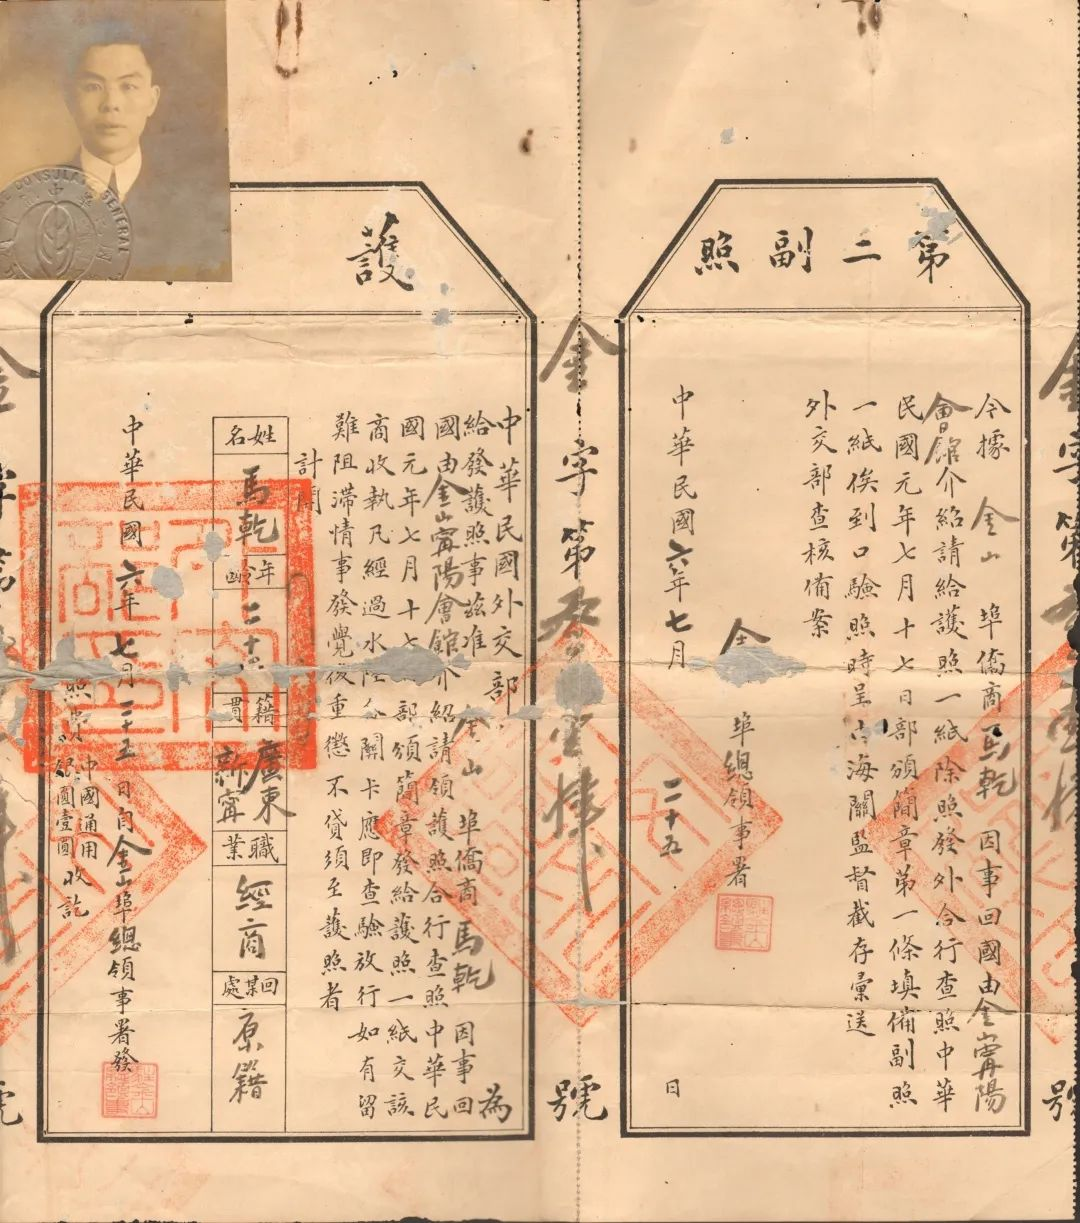 第二副照
今據 金山 埠僑商馬乾 因事回國由金山甯陽
會館介紹請給護照一紙除照發外合行查照中華
民國元年七月十七日部頒簡章第一條填備副照
一紙俟到口驗照時呈由海關監督截存彙送
外交部查核備案
金 埠總領事署
中華民國六年七月 二十五 日
金字第 壹 號
護
中華民國外交部 為
給發護照事茲准 金山 埠僑商 馬乾 因事回
國由金山甯陽會館介紹請領護照合行查照中華民
國元年七月十七 部頒簡章發給護照一紙交該
商收執凡經過水陸各關卡應即查驗放行如有留
難阻滯情事發覺後重懲不貸須至護照者
計開
姓名 馬乾
年齡 二十
籍貫 廣東新甯
職業 經商
回某處 原籍
中華民國六年七月二十五日 金山埠總領事署發
照費 中國通用
銀圓壹圓 收訖
CONSULATE GENERAL